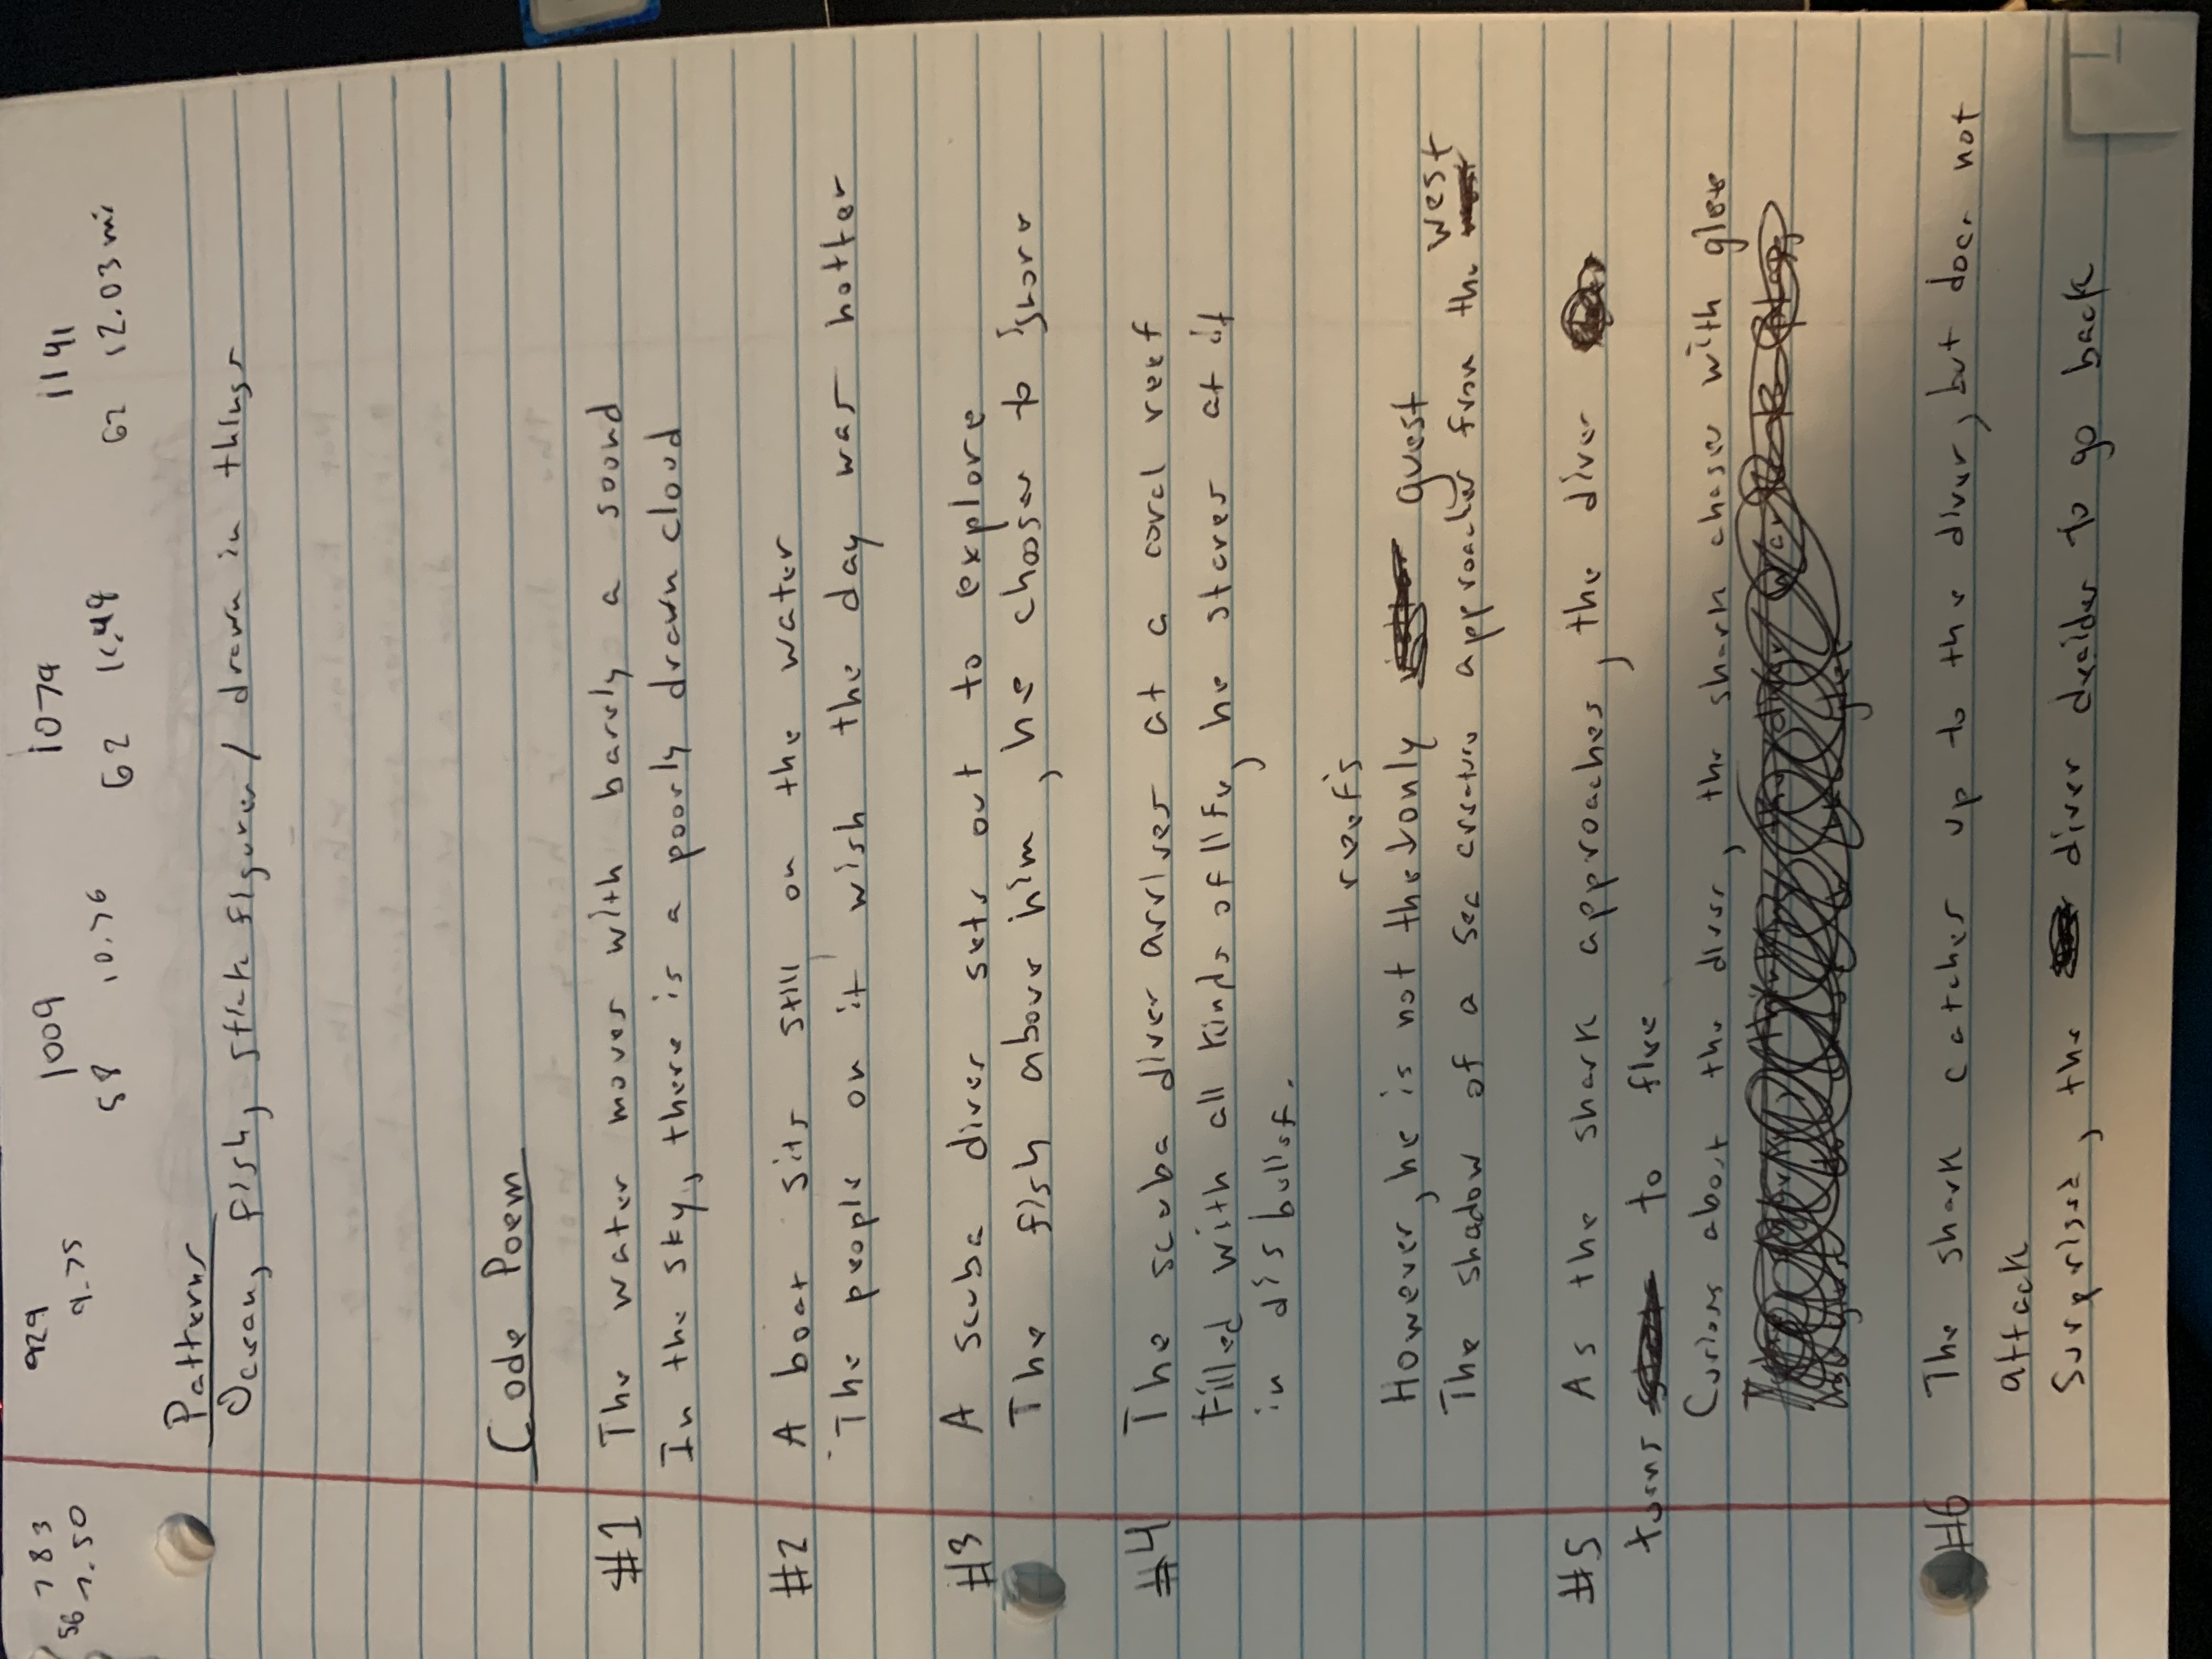 783 929 1009 1074 1141
56 7.50 9.75 58 10.76 62 11.48 62 12.03 mi
Patterns
Ocean, fish, stick figures / drawn in things
Code Poem
#1 The water moves with barely a sound
In the sky, there is a poorly drawn cloud
#2 A boat sits still on the water
The people on it wish the day was hotter
#3 A scuba diver sets out to explore
The fish above him, he chooses to ignore
#4 The scuba diver arrives at a coral reef
Filled with all kinds of life, he stares at it
in disbelief.
reef's
However, he is not the only guest
west
The shadow of a sea creature approaches from the
#5 As the shark approaches, the diver
turns to flee
Curious about the diver, the shark chases with glee
#6 The shark catches up to the diver, but does not
attack
Surprised, the diver decides to go back